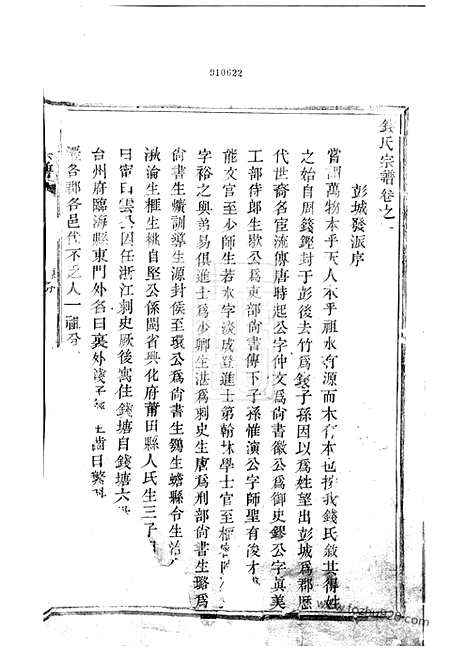 910622
錢氏宗譜卷之一
彭城發派序
嘗謂萬物本乎天人本乎祖水有源而木有本也按我錢氏敘其得姓
之始自周錢鏗封于彭後去竹為錢子孫因以為姓望出彭城為郡歷
代世裔各宦流傳唐特起公字仲文為尚書徽公為御史鏐公字真美
工部侍郎生歇公為吏部尚書傳下子孫惟演公字師聖有俊才
能文官至少師生若水字淡成登進士第翰林學士官至樞密
字裕之與弟易俱進士為少卿生湛為刺史生唐為刑部尚書生璐為
尚書生纊訓導生源封侯至瓌公為尚書生鷄生蟾縣令生
淪生榧生桃自堅公係閩省興化府莆田縣人氏生三子
曰甯曰雲 因任浙江刺史厥後寓住錢塘自錢塘六
台州府臨海縣東門外名曰裏外淺子 生齒日繁
各郡各邑代不乏人一祖分
www.fozhu920.com